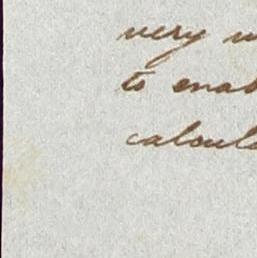 very
to enab
calcul